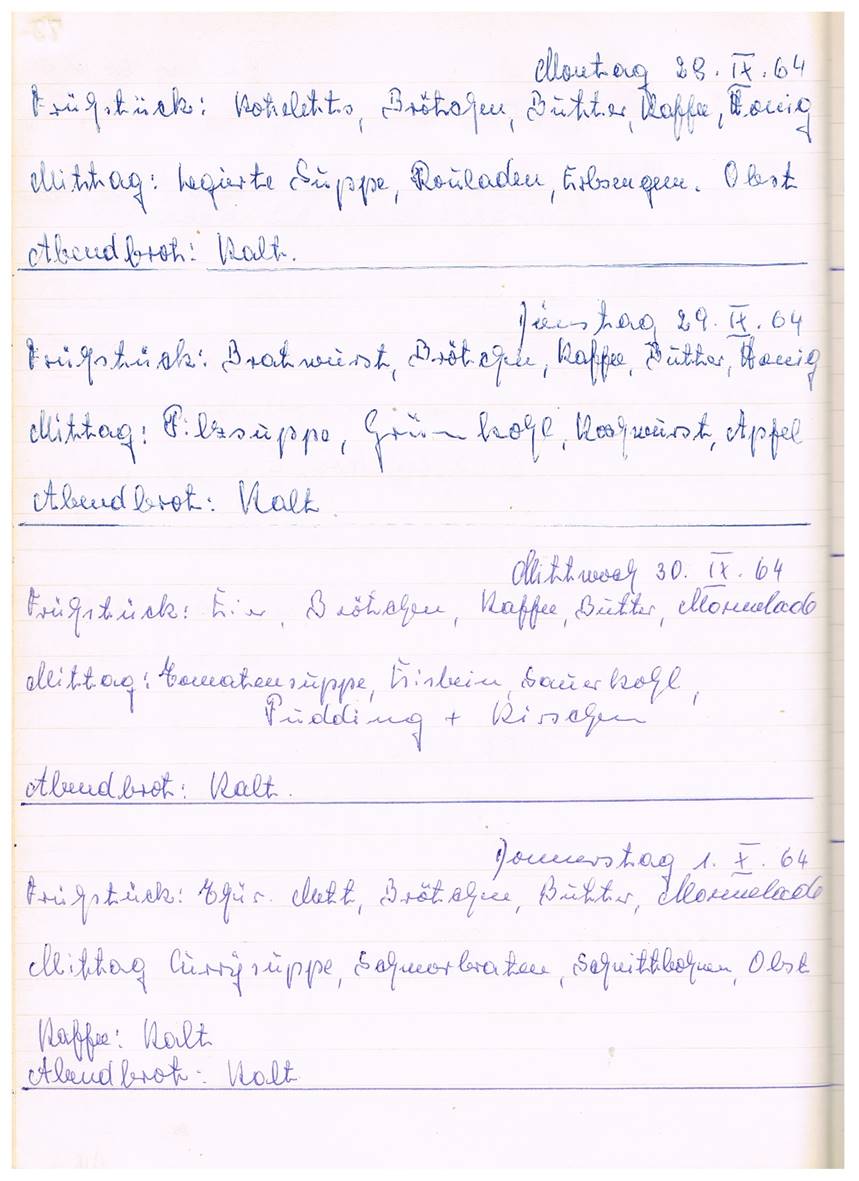 Montag 28. IX. 64
Frühstück: Koteletts, Brötchen, Butter, Kaffee, Honig
Mittag: Legierte Suppe, Rouladen, Erbsengem. Obst
Abendbrot: Kalt.
Dienstag 29. IX. 64
Frühstück: Bratwurst, Brötchen, Kaffee, Butter, Honig
Mittag: Pilzsuppe, Grünkohl, Kochwurst, Apfel
Abendbrot: Kalt
Mittwoch 30. IX. 64
Frühstück: Eier, Brötchen, Kaffee, Butter, Marmelade
Mittag: Tomatensuppe, Eisbein, Sauerkohl,
Pudding + Kirschen
Abendbrot: Kalt.
Donnerstag 1. X. 64
Frühstück: Thür. Mett, Brötchen, Butter, Marmelade
Mittag Currysuppe, Schmorbraten, Schnittbohnen, Obst
Kaffee: Kalt
Abendbrot: Kalt